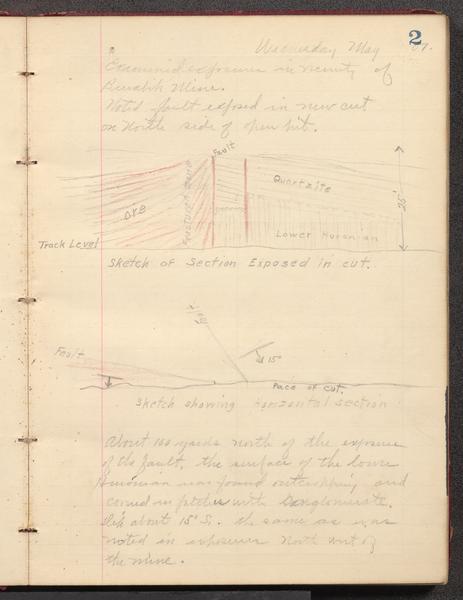 2
Wednesday May 7.
Examined exposures in vicinity of
Biwabik Mine.
Noted fault exposed in new cut
on North side of open pit.
Fault
Quartzite
Ore
Fractured Zone
25'
Lower Huronian
Track Level
Sketch of Section Exposed in cut.
Fault
Fault
15°
Face of cut.
Sketch showing Horizontal section
About 100 yards north of the exposure
of the fault, the surface of the lower
Huronian was found outcropping and
covered in patches with Conglomerate.
Dip about 15° S. the same as was
noted in exposures North west of
the mine.